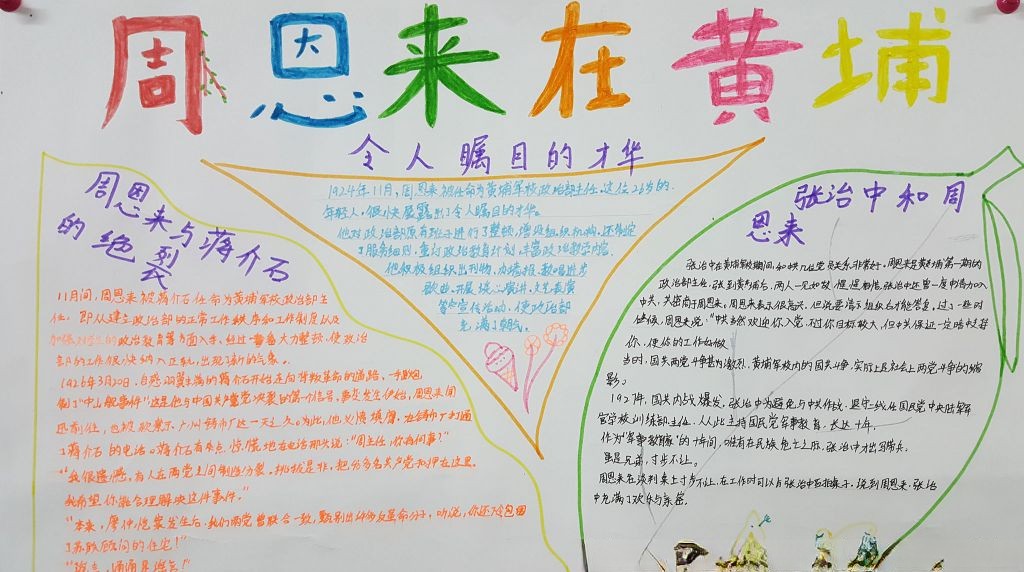 周恩来在黄埔
令人瞩目的才华
1924年11月,周恩来被任命为黄埔军校政治部主任。这位26岁的
年轻人,很快展露出了令人瞩目的才华。
他对政治部原有班子进行了整顿,增设组织机构,还制定
了服务细则,重订政治教育计划,丰富政治教学内容。
他积极组织出刊物,办墙报,教唱进步
歌曲,开展演讲,文艺表演
等宣传活动,使政治部
充满了朝气。
周恩来与蒋介石
的绝裂
11月间,周恩来被蒋介石任命为黄埔军校政治部主
任。即从建立政治部的正常工作秩序和工作制度以及
加强对学生的政治教育等方面入手,经过一番大力整顿,使政治
部的工作很快纳入正轨,出现了新的气象。
1926年3月20日,自恃羽翼丰满的蒋介石开始走向背叛革命的道路,一手炮
制了"中山舰事件"这是他与中国共产党决裂的第一个信号,事变发生伊始,周恩来闻
迅前往,也被软禁于广州造币厂达一天之久。为此,他义愤填膺,
了蒋介石的电话。蒋介石有点惊慌地在电话那头说:"周主任,你有何事?"
"我很遗憾,有人在两党之间制造分裂,挑拨是非,把多名共产党扣押在这里。
我希望你能合理解决这件事件。"
"本来,廖仲恺案发生后,我们两党曾联合一致,甄别出许多反革命分子,听说,你还冷包围
了苏联顾问的住宅!"
张治中和周
恩来
张治中在黄埔军校期间,和共几位党员关系非常好。周恩来是黄埔第一期的
政治部主任,张到黄埔后,两人一见如故,张治中还曾一度申请加入
中共,关密商于周恩来。周恩来表示很高兴,但说要请示组织后才能答复。过了一些时
候后,周恩来说:"中共当然欢迎你入党,不过你目标较大,但中共保证一定暗中支持
你,使你的工作好做
当时,国共两党斗争甚为激烈,黄埔军校内的国共斗争,实际上是社会上两党斗争的缩
影。
1927年,国共内战爆发,张治中为避免与中共作战,坚守二线任国民党中央陆军军
官学校训练部主任,从此主持国民党军事教育,长达十年。
作为"军事教育"的十年间,唯有在民族危亡之际,张治中才出马带兵。
虽是兄弟,寸步不让。
周恩来在谈判桌上寸步不让,在工作时可以与张治中互拍桌子,说到周恩来,张治
中充满了欢乐与亲密。